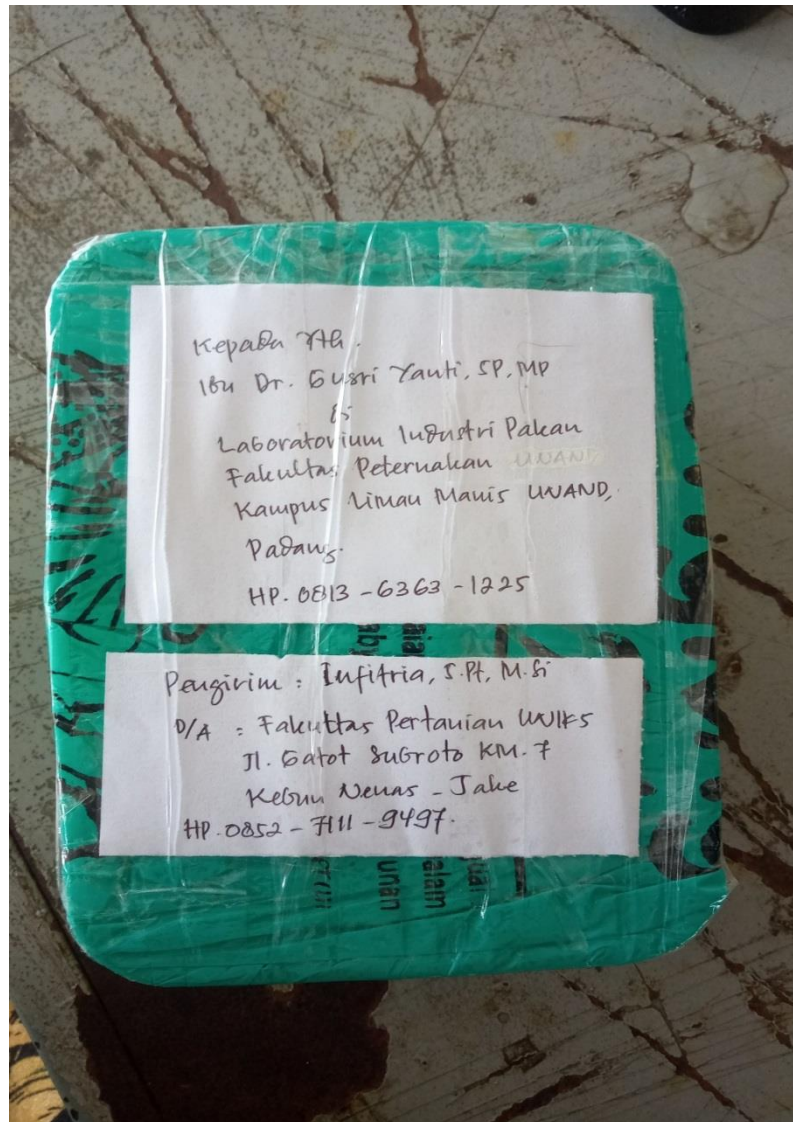 Kepada Yth.
Ibu Dr. Gusri Yanti, SP, MP
di
Laboratorium Industri Pakan
Fakultas Peternakan UNAND
Kampus Limau Manis UNAND,
Padang.
HP. 0813-6363-1225
Pengirim : Infitria, S.Pt, M.Si
D/A : Fakultas Pertanian UNIKS
Jl. Gatot Subroto KM. 7
Kebun Nenas - Jake
HP. 0852-7111-9497.
alam
unan